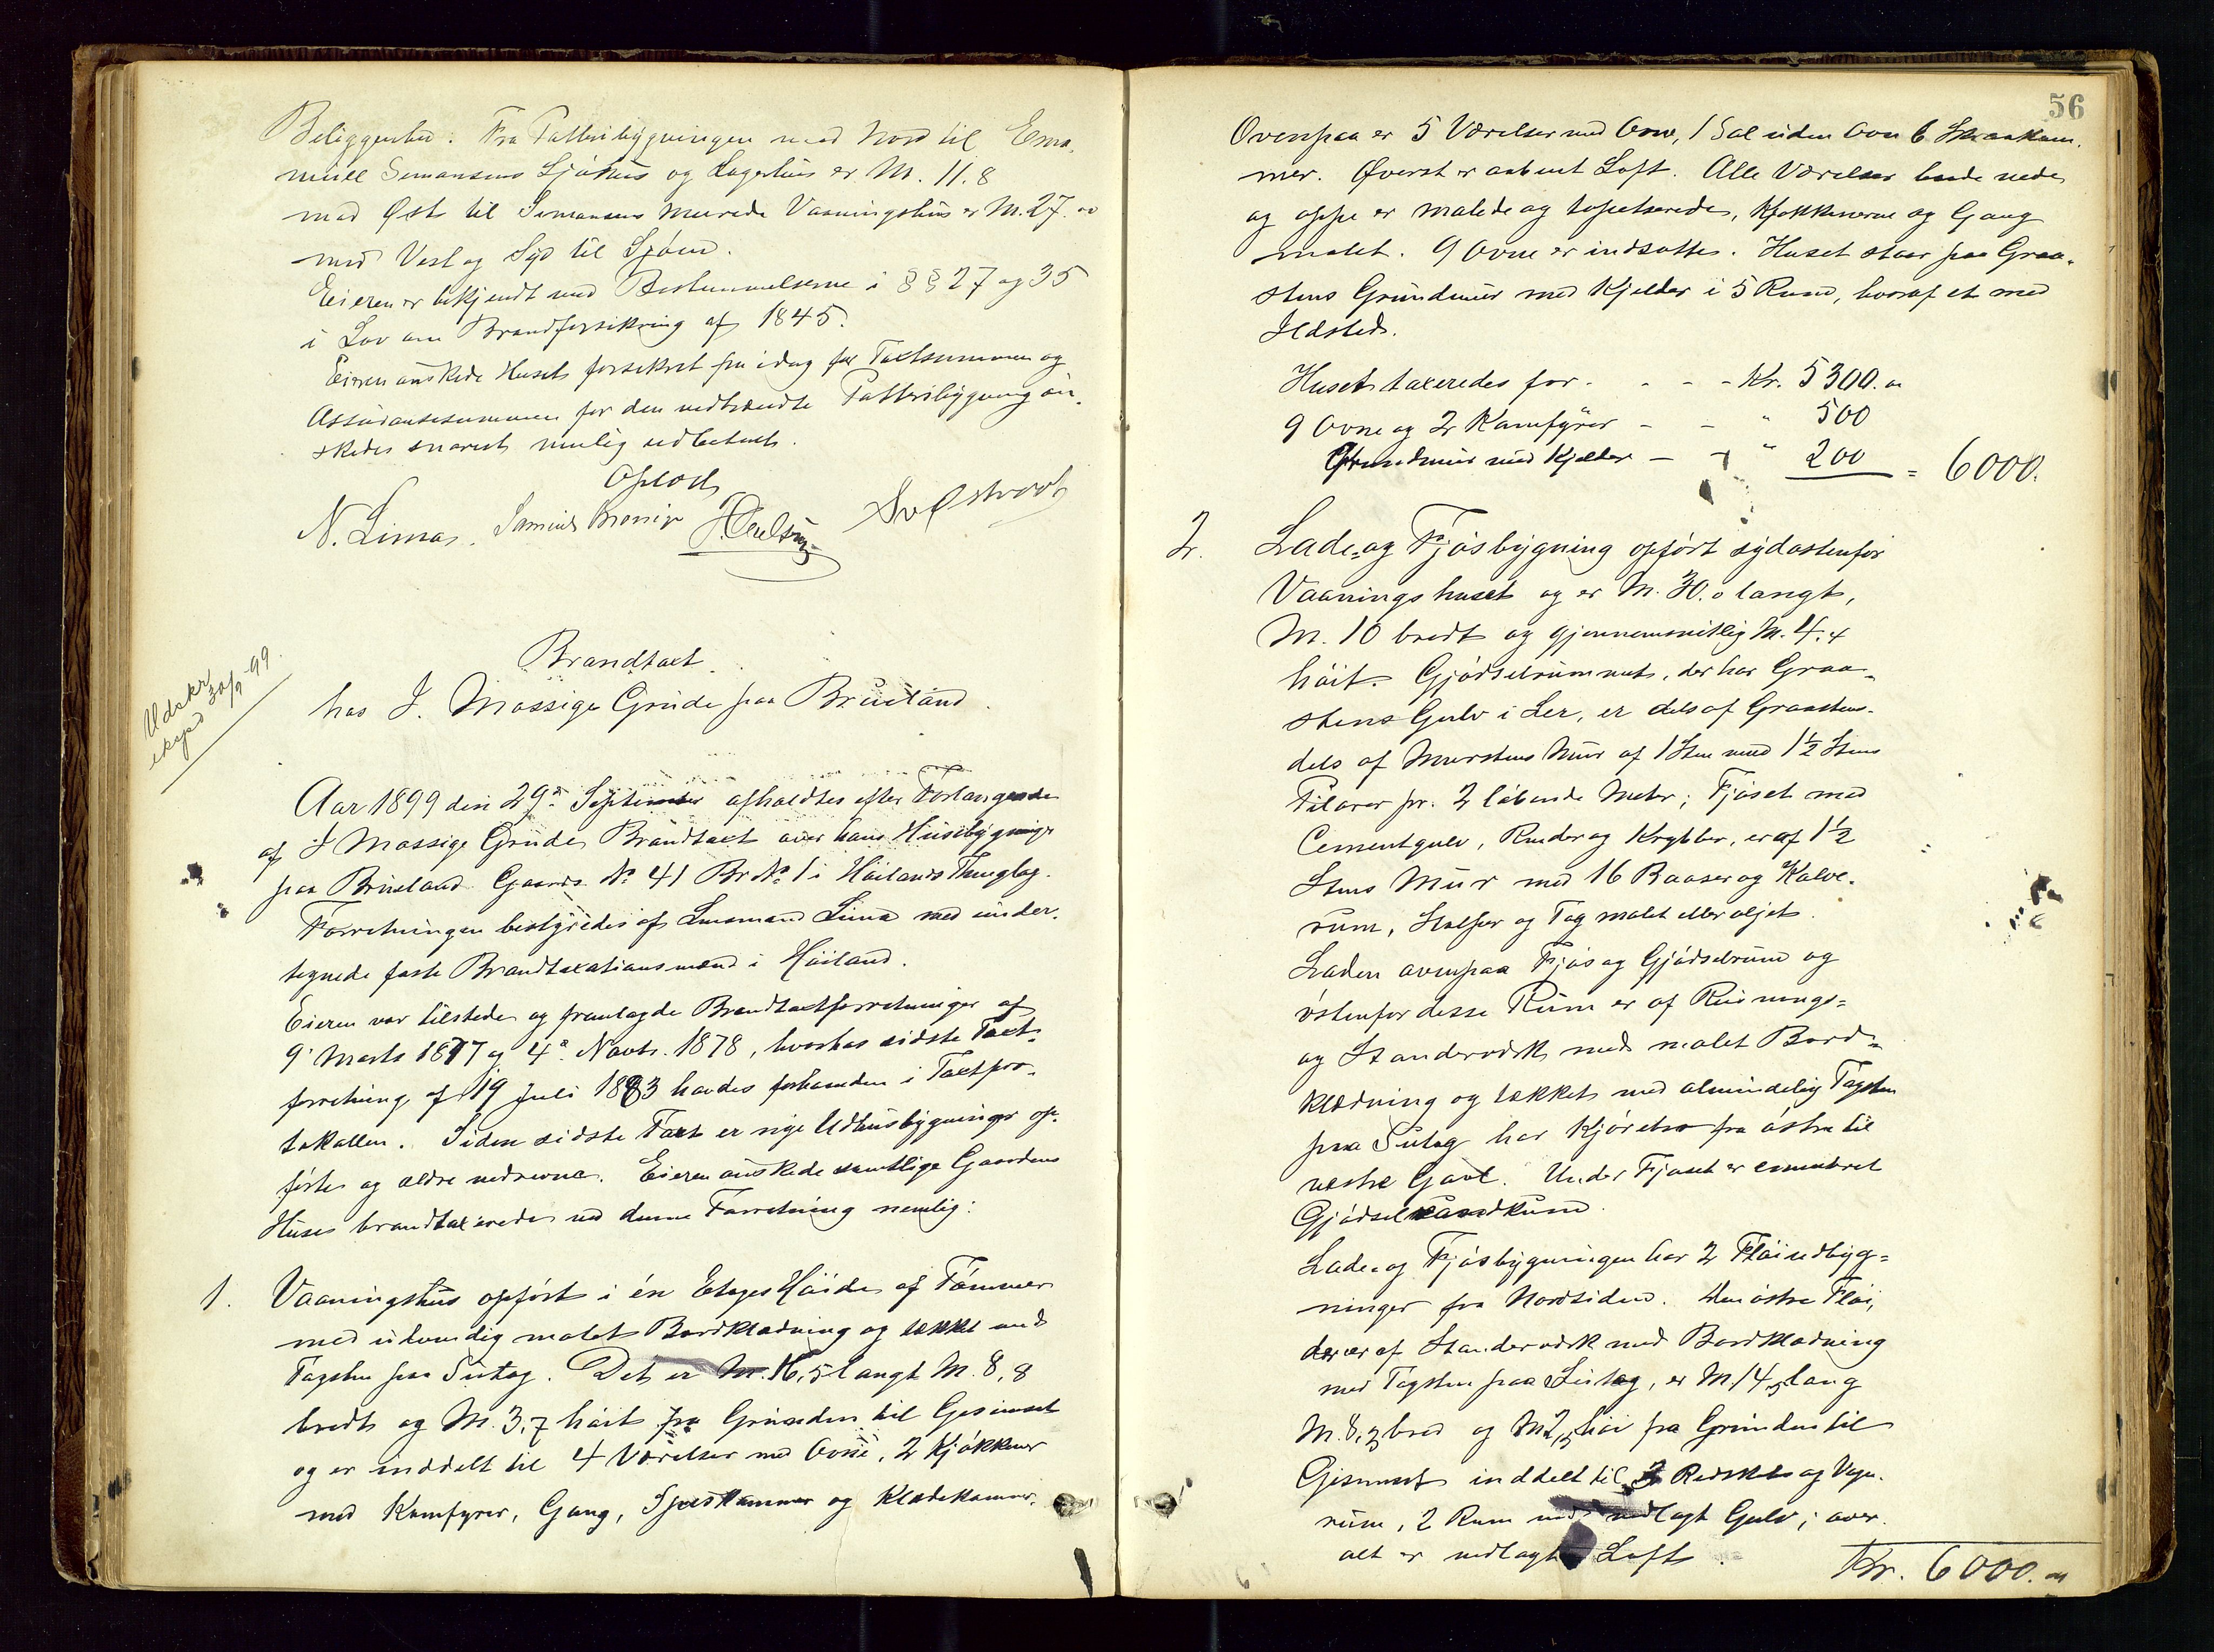 Beliggenhed: Fra Potteribygningen mod Nord til Ema-
nuell Simonsens Sjøhus og Lagerhus er M. 11.8
mod Øst til Simonsens murede Vaaningshus er M. 27.00
mod Vest og Syd til Sjøen.
Eieren er bekjendt med Bestemmelserne i §§ 27 og 35
i Lov om Brandforsikring af 1845.
Eieren ønskede Huset forsikret fra idag for Taxtsummen og
Assuransesummen for den nedbrændte Potteribygning øn-
skedes snarest mulig udbetalt.
Oplæst
N. Lima.
Udskr.
exped 30/9-99.
Brandtaxt
hos J. Mossige Grude paa Brueland.
Aar 1899 den 29de September afholdtes efter Forlangende
af J Mossige Grude Brandtaxt over hans Husebygninger
paa Brueland Gaards No 41 Br No 1 i Høilands Thinglag.
Forretningen bestyredes af Lensmand Lima med under-
tegnede faste Brandtaxationsmænd i Høiland.
Eieren var tilstede og fremlagde Brandtaxtforretninger af
9' Marts 1877 og 4de Novbr. 1878, hvorhos sidste Taxt-
forretning af 19 Juli 1883 havdes forhaanden i Taxtpro-
tokollen. Siden sidste Taxt er nye Udhusbygninger op-
førte og ældre nedrevne. Eieren ønskede samtlige Gaardens
Huse brandtaxerede ved denne Forretning nemlig:
1. Vaaningshus opført i én Etages Høide af Tømmer
med udvendig malet Bordklædning og tækket med
Tagsten paa Sutag. Det er M. 16,5 langt M. 8,8
bredt og M. 3,7 høit fra Grunden til Gesimset
og er inddelt til 4 Værelser med Ovne, 2 Kjøkkener
med Komfyrer, Gang, Spiskammer og Klædekammer.
56
Ovenpaa er 5 Værelser med Ovn, 1 Sal uden Ovn 6 Skraakam-
mer. Øverst er aabent Loft. Alle Værelser baade nede
og oppe er malede og tapetserede, Kjøkkenerne og Gang
malet. 9 Ovne er indsatte. Huset staar paa Graa-
stens Grundmur med Kjelder i 5 Rum, hvoraf et med
Ildsted.
Huset taxeredes for - - - - Kr. 5300.00
9 Ovne og 2 Komfyrer - - " 500
Grundmur med Kjelder - - " 200 = 6000.
2. Lade- og Fjøsbygning opført sydostenfor
Vaaningshuset og er M. 30.0 langt,
M. 10 bredt og gjennemsnitlig M. 4.4
høit. Gjødselrummet, der har Graa-
stens Gulv i Ler, er dels af Graastens-
dels af Murstens Mur af 1 Sten med 1½ Stens
Pilarer pr. 2 løbende Meter; Fjøset med
Cementgulv, Render og Krybber, er af 1½
Stens Mur med 16 Baaser og Kalve-
rum, Stolper og Tag malet eller oljet.
Laden ovenpaa Fjøs og Gjødselrum og
østenfor disse Rum er af Reisnings-
og Standerværk med malet Bord-
klædning og tækket med almindelig Tagsten
paa Sutag har Kjørebro fra østre til
vestre Gavl. Under Fjøset er cementeret
Gjødselvandkum.
Lade- og Fjøsbygningen har 2 Fløiudbyg-
ninger fra Nordsiden. Den østre Fløi,
der er af Standerværk med Bordklædning
med Tagsten paa Sutag, er M. 14,5 lang
M. 8,3 bred og M 2,5 høi fra Grunden til
Gesimset inddelt til Redskabs og Vogn-
rum, 2 Rum med nedlagt Gulv; over-
alt er nedlagt Loft.
Kr. 6000.00